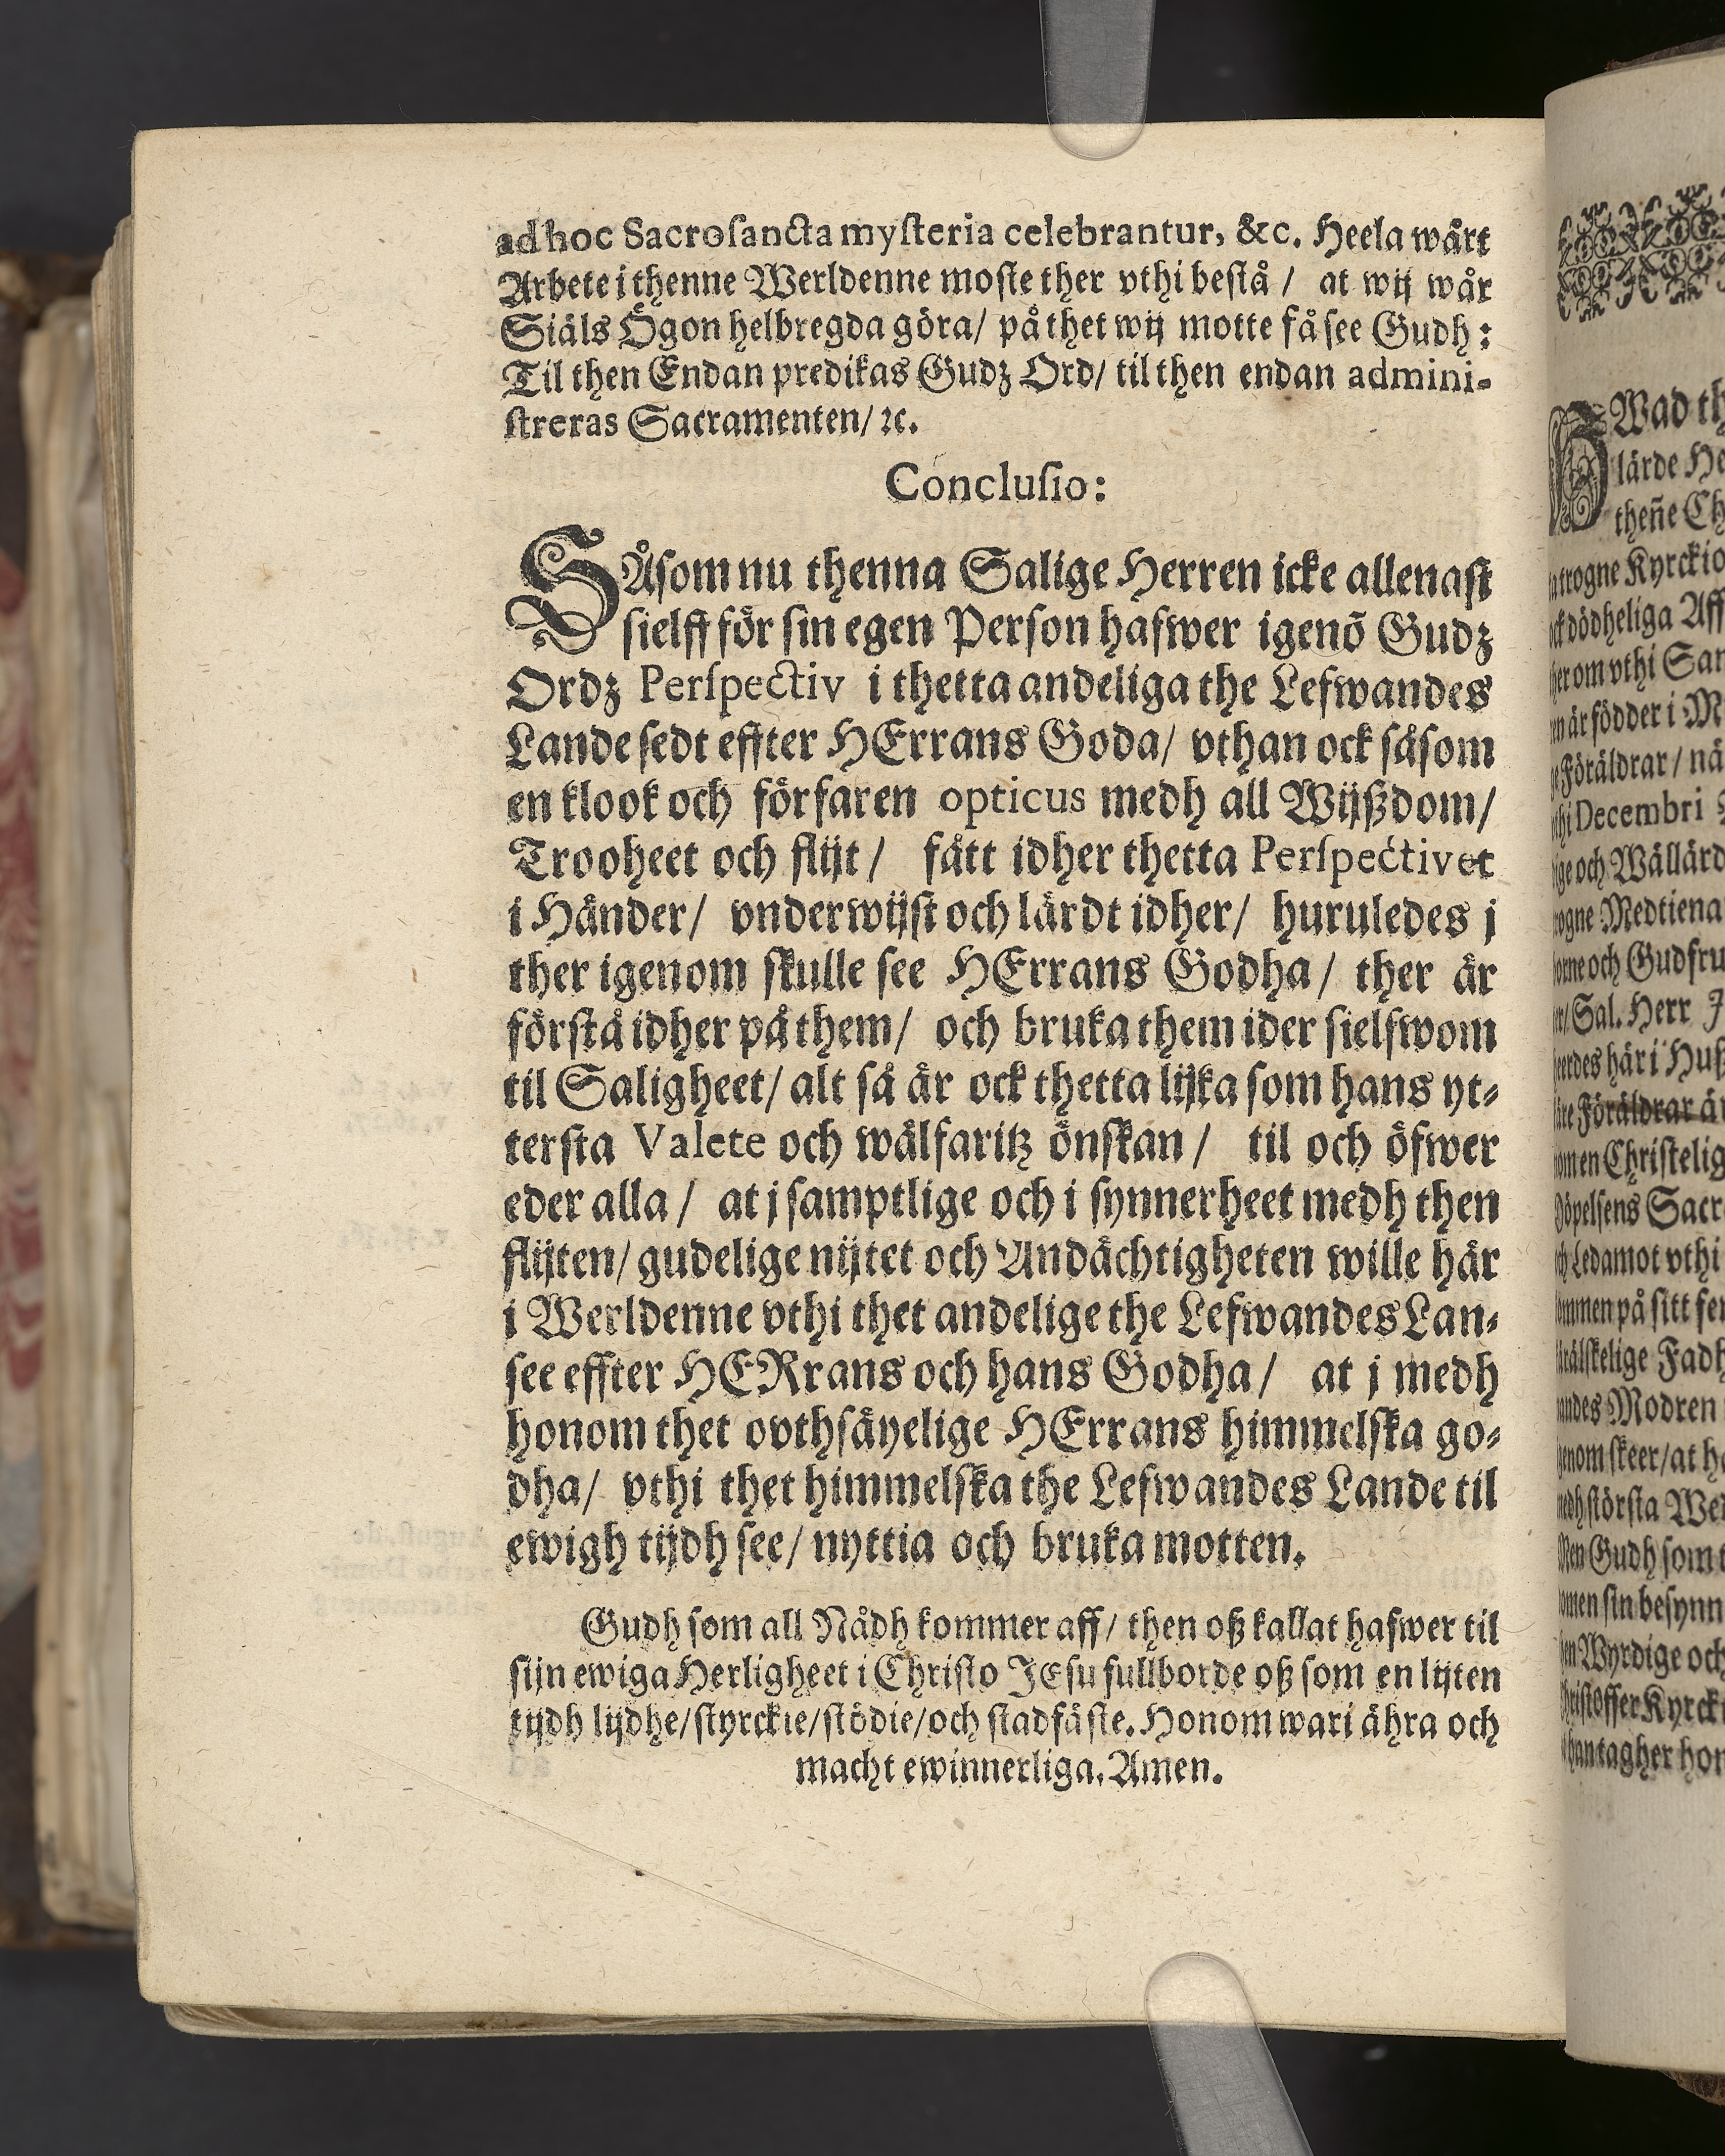 ad hoc Sacrosancta mysteria celebrantur, &c. Heela wårt
Arbete i thenne Werldenne moste ther vthi bestå / at wij wår
Siäls Ögon helbregda göra/ på thet wij motte få see Gudh:
Til then Endan predikas Gudz Ord/ til then endan admini-
streras Sacramenten/ ꝛc.
Conclusio:
SÅsom nu thenna Salige Herren icke allenast
sielff för sin egen Person hafwer igenõ Gudz
Ordz Perspectiv i thetta andeliga the Lefwandes
Lande sedt effter HErrans Goda/ vthan ock såsom
en klook och förfaren opticus medh all Wijßdom/
Trooheet och flijt / fått idher thetta Perspectivet
i Händer/ vnderwijst och lärdt idher/ huruledes j
ther igenom skulle see HErrans Godha / ther är
förstå idher på them/ och bruka them ider sielfwom
til Saligheet/ alt så är ock thetta lijka som hans yt-
tersta Valete och wälfaritz önskan / til och öfwer
eder alla / at j samptlige och i synnerheet medh then
flijten/ gudelige nijtet och Andächtigheten wille här
i Werldenne vthi thet andelige the Lefwandes Lan-
see effter HERrans och hans Godha / at j medh
honom thet ovthsäyelige HErrans himmelska go-
dha/ vthi thet himmelska the Lefwandes Lande til
ewigh tijdh see/ nyttia och bruka motten.
Gudh som all Nådh kommer aff/ then oß kallat hafwer til
sijn ewiga Herligheet i Christo JEsu fullborde oß som en lijten
tijdh lijdhe/ styrckie/ stödie/ och stadfäste. Honom wari ähra och
macht ewinnerliga. Amen.
Wad
lärde
theñe
Kyrckio
dödheliga
om vthi
är födder i
Föräldrar / nä
Decembri
och Wällärd
Medtiena
och Gudfru
Sal. Herr
här i Huß
Föräldrar
Christelig
Sacr
Ledamot vthi
på sitt
Fadh
Modren
skeer/ at
största
Gudh som
sin besynn
Wyrdige och
Kyrck
tagher